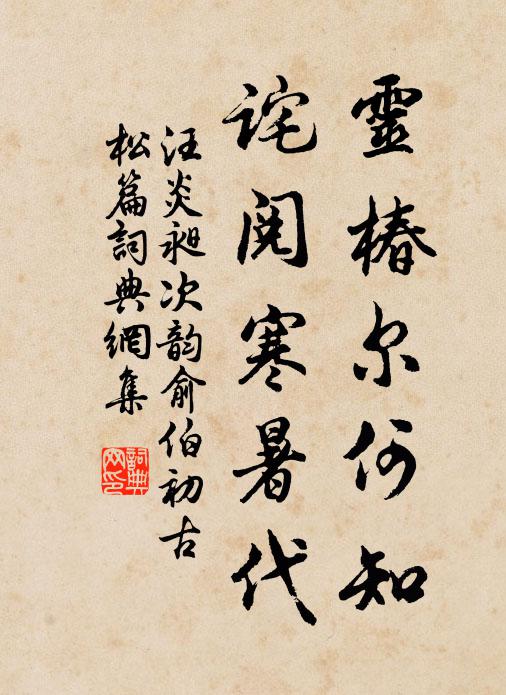 靈椿尔何知
詫閱寒暑代
汪炎昶次韵俞伯初古
松篇詞典網集
詞典
网印